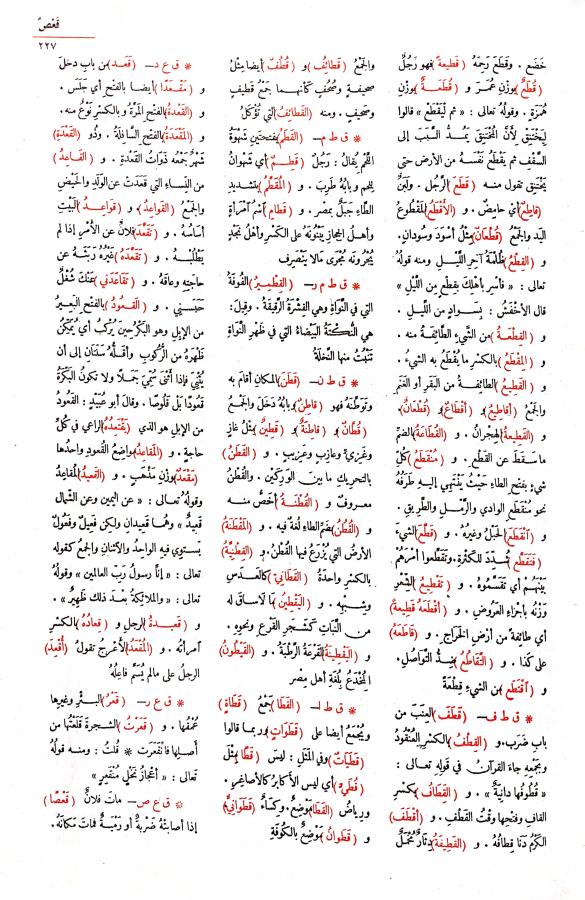 قَعْصٌ
٢٢٧
خَضَع . وقَطَع رَحِمَهُ (قَطِيعةً) فهو رَجُلٌ
(قُطَعٌ) بوَزْنِ عُمَرَ و (قُطَعَةٌ) بوَزْنِ
هُمَزَة . وقولُهُ تعالى : « ثم لْيَقْطَعْ » قالوا
لِيَخْتَنِقْ لأَنَّ المُخْتَنِقَ يَمُدُّ السَّبَبَ إلى
السَّقْفِ ثم يَقْطَعُ نَفْسَهُ من الأرْضِ حتى
يَخْتَنِقَ تقول منه (قَطَعَ) الرَّجُل . ولَبَنٌ
(قاطِعٌ) أي حامِضٌ . و (الأَقْطَعُ) المَقْطوعُ
اليَدِ والجَمْعُ (قُطْعانٌ) مثْلُ أَسْودَ وسُودانٍ.
و (القِطْعُ) ظُلْمَةُ آخِرِ اللَّيْـلِ ومنه قولُهُ
تعالى : « فأَسْرِ بأهْلِكَ بقِطْعٍ مِن اللَّيْلِ »
قال الأخْفَشُ : بِسَوادٍ من اللَّيلِ .
و (القِطْعَةُ) من الشَّيْءِ الطَّائفةُ منه .
و (المِقْطَعُ) بالكَسْرِ ما يُقْطَعُ به الشيءُ .
و (القَطِيعُ) الطَّائفةُ من البَقَرِ أو الغَنَم
والجَمْعُ (أقاطِيعُ) و (أَقْطاعٌ) و (قُطْعانٌ)
و (القَطِيعةُ) الهِجْرانُ . و (القُطَاعَةُ) بالضمِّ
ما سَقَطَ عن القَطْع . و (مُنْقَطَعُ) كُلِّ
شيءٍ بفَتح الطاءِ حَيْثُ يَنْتَهِي إليه طَرَفُهُ
نحو مُنْقَطَع الوادِي والرَّمْلِ والطَّريقِ .
و (انْقَطَع) الحَبْلُ وغيرُهُ . و (قَطَّعَ) الشَّيءَ
(فَتَقَطَّعَ) شُدِّدَ للكَثْرةِ. وتَقَطَّعُوا أَمْرَهُمْ
بَيْنَهُم أي تَقَسَّموه . و (تَقْطِيعُ) الشِّعْرِ
وَزْنُهُ بأجْزاءِ العَرُوضِ . و (أَقْطَعَهُ قَطِيعةً)
أي طائفةً من أرْضِ الخَراجِ . و (قاطَعَهُ)
على كذا . و (التَّقاطُعُ) ضِدُّ التَّوَاصُلِ .
و (اقْتَطَعَ) من الشيءِ قِطْعَةً
* ق ط ف – (قَطَفَ) العِنَبَ من
باب ضَرَبَ. و (القِطْفُ) بالكَسْرِ العُنْقُودُ
وبجَمْعِهِ جاءَ القرآنُ في قَولِهِ تعالى :
« قُطُوفُها دانِيَةٌ » . و (القِطَافُ) بكَسْرِ
القافِ وفتْحِها وقْتُ القَطْفِ . و (أَقْطَفَ)
الكَرْمُ دَنَا قِطافُهُ . و (القَطِيفةُ) دِثَارٌ مُخَمَّلٌ
والجَمْعُ (قَطَائِفُ) و (قُطُفٌ) أيضا مِثْلُ
صَحيفةٍ وصُحُفٍ كأنَّهـما جَمْعُ قَطِيفٍ
وصَحيفٍ . ومنه (القَطائفُ) التي تُؤْكَلُ
* ق ط م – (القَطَمُ) بفتحتَين شَهْوَةُ
اللَّحْمِ يُقالُ : رَجُلٌ (قَطِمٌ) أي شَهْوانُ
لِلحمِ وبابُهُ طَرِبَ . و (المُقَطَّمُ) بتشديدِ
الطَّاءِ جَبَلٌ بمصر . و (قَطامِ) اسمُ امْرأةٍ
وأهـلُ الحِجازِ يَبْنُونَهُ على الكَسْرِ وأَهْلُ نَجْدٍ
يُجْرُونَه مُجْرَى مالا يَنْصَرِف
* ق ط م ر – (القِطْمِيرُ) الفُوفَةُ
التي في النَّواةِ وهي القِشْرَةُ الرَّقيقَةُ . وقيلَ :
هي النُّكْتَـةُ البَيْضاءُ التي في ظَهْرِ النَّواةِ
تَنْبُتُ منها النَّخْلَةُ
* ق ط ن – (قَطَنَ) بالمكانِ أقامَ به
وتَوَطَّنَهُ فهو (قاطِنٌ) وبابُهُ دَخَلَ والجَمْعُ
(قُطَّانٌ) و (قاطِنَةٌ) و (قَطِينٌ) مِثْلُ غازٍ
وغَزِيٍّ وعازِبٍ وعَزِيبٍ . و (القَطَنُ)
بالتَّحريكِ ما بين الوَرِكَينِ . والقُطْنُ
معروفٌ و (القُطْنَـةُ) أَخَصُّ منـه
و (القُطُنُ) بضمِّ الطاءِ لُغةٌ فيه . و (المَقْطَنَةُ)
الأرضُ التي يُزْرَعُ فيها القُطْنُ. و (القِطْنِيَّةُ)
بالكسْرِ واحدةُ (القَطَانيّ) كالعَدَسِ
وشِبهِهِ . و (اليَقْطِينُ) مَا لَا سَاقَ له
من النَّبَاتِ كَشَجَرِ القَرْعِ ونحوِهِ .
و (اليَقْطِينَةُ) القَرْعَةُ الرَّطْبَةُ . و (القَيْطُونُ)
المُخْدَعُ بِلُغَةِ أهْلِ مِصْرَ
* ق ط ا – (القَطَا) جَمْعُ (قَطَاةٍ)
ويُجْمَعُ أيضا على (قَطَواتٍ) وربما قالوا
(قَطَيَاتٌ) وفي المَثَلِ : ليسَ (قَطًا) مِثْلَ
(قُطَيٍّ) أي ليس الأكابرُ كالأصاغِرِ .
ورِياضُ (القَطَا) موضِعٌ. وكِسَاءٌ (قَطَوَانيٌّ)
و (قَطَوانُ) مَوْضِعٌ بالكُوفَةِ
* ق ع د – (قَعَد) من بابِ دخلَ
و (مَقْعَدًا) أيضا بالفتحِ أي جَلَسَ .
و (القَعْدةُ) بالفتح المَرَّةُ وبالكسرِ نَوْعٌ منه .
و (المَقْعَدَةُ) بالفتح السَّافِلَةُ . وذُو (القَعْدَةِ)
شَهْرٌ جَمْعُه ذَوَاتُ القَعْدَةِ . و (القاعِدُ)
من النِّساءِ التي قَعَدَتْ عن الوَلَدِ والحَيْضِ
والجَمْعُ (القَواعِدُ) و (قَواعِدُ) البَيْتِ
أَساسُهُ . و (تَقَعَّدَ) فلانٌ عن الأمْرِ إذا لم
يَطْلُبْـهُ . و (تَقَعَّدَهُ) غَيْرُهُ رَبَثَهُ عن
حاجَتِهِ وعاقَهُ . و (تَقاعَدَني) عَنْكَ شُغْلٌ
حَبَسَني . و (القَـعُودُ) بالفتح البَعِيرُ
من الإبِلِ وهو البَكْرُ حين يُرْكَبُ أي يُمَكِّنُ
ظَهْرَهُ من الرُّكُوبِ وأَقَلُّهُ سَنَتانِ إلى أن
يُثْنِي فإذا أَثْنَى سُمِّيَ جَمَـلًا ولا تكونُ البَكْرَةُ
قَعُودًا بَل قَلُوصًا . وقال أبو عُبَيْدٍ : القَعُودُ
من الإبِلِ هو الذي (يَقْتَعِدُهُ) الراعي في كُلِّ
حاجةٍ . و (المَقاعِدُ) مواضِعُ القُعودِ واحدُها
(مَقْعَدٌ) بوَزْنِ مَذْهَبٍ . و (القَعِيدُ) المُقاعِدُ
وقولُهُ تعالى : « عن اليَمينِ وعن الشِّمالِ
قَعيدٌ » وهُـمـا قَعِيدانِ ولكن فَعِيلٌ وفَعُولٌ
يَسْتوي فيه الواحِدُ والاثنانِ والجمْعُ كقوله
تعالى : « إنَّا رسولُ رَبِّ العالَمين » وقولُهُ
تعالى : « والملائكةُ بعْدَ ذلك ظَهيرٌ » .
و (قَعيـدةُ) الرجلِ و (قِعادُهُ) بالكَسْرِ
امرأتُهُ . و (المُقْعَدُ) الأَعْرجُ تقولُ (أُقْعِدَ)
الرجلُ على ما لم يُسَمَّ فاعِلُهُ
* ق ع ر – (قَعْرُ) البـئْرِ وغيرِها
عُمْقُها . و (قَعَرْتُ) الشَّجرةَ قَلَعْتُها من
أَصلِها فانْقَعَرَت * قُلْتُ : ومنـه قولُهُ
تعالى : « أعْجازُ نَخْلٍ مُنْقَعِرٍ »
* ق ع ص – مات فلانٌ (قَعْصًا)
إذا أصابَتْهُ ضَرْبَةٌ أو رَمْيَةٌ فماتَ مَكانَهُ.